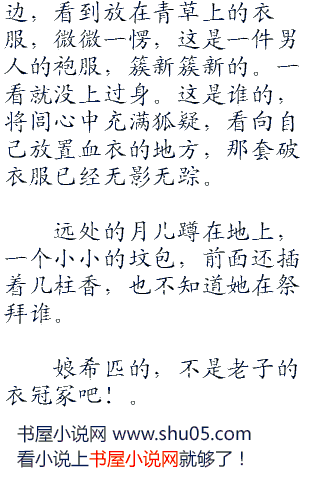 边，看到放在青草上的衣
服，微微一愣，这是一件男
人的袍服，簇新簇新的。一
看就没上过身。这是谁的，
将闾心中充满狐疑，看向自
己放置血衣的地方，那套破
衣服已经无影无踪。
远处的月儿蹲在地上，
一个小小的坟包，前面还插
着几柱香，也不知道她在祭
拜谁。
娘希匹的，不是老子的
衣冠冢吧！。
书屋小说网 www.shu05.com
看小说上书屋小说网就够了！